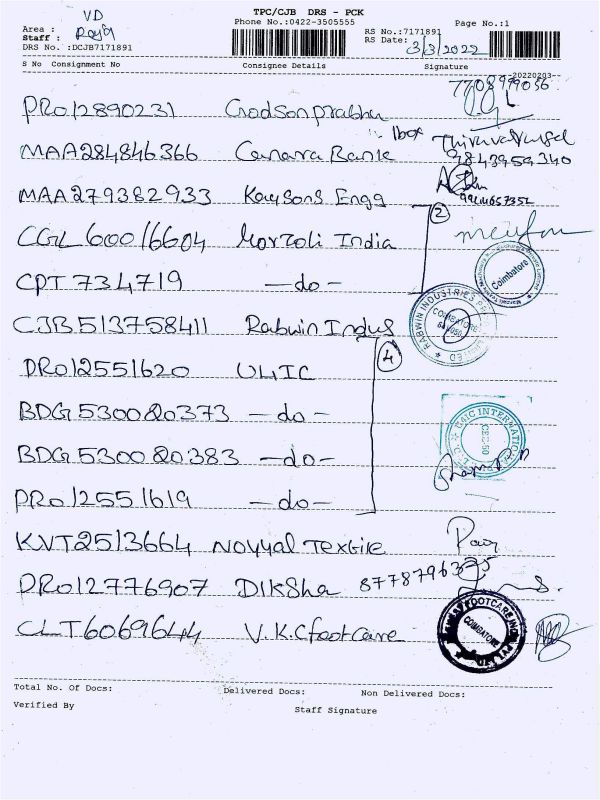 TPC/CJB DRS - PCK
Phone No.:0422-3505555
Page No.:1
VD
Area :
Staff : Raja
DRS No. :DCJB7171891
RS No.:7171891
RS Date: 3/3/2022
S No Consignment No Consignee Details Signature
20220203
7708999056
PRO12890231 Godsonprabhu
1box
MAA284846366 Canara Bank 9843959340
MAA279382933 Kaysons Engg 9944657352
2
CGL60016604 Marzoli India
Coimbatore
CPT 734719 -do-
CJB513758411 Rabwin Indus
RABWIN INDUSTRIES
4
PRO12551620 ULIC
BDG530020373 -do-
BDG530020383 -do-
PRO12551619 -do-
KVT2513664 Noyyal Textile
PRO12776907 Diksha 8778796375
CLT6069644 V.K.C footcare
FOOTCARE
COIMBATORE
Total No. Of Docs: Delivered Docs: Non Delivered Docs:
Verified By Staff Signature